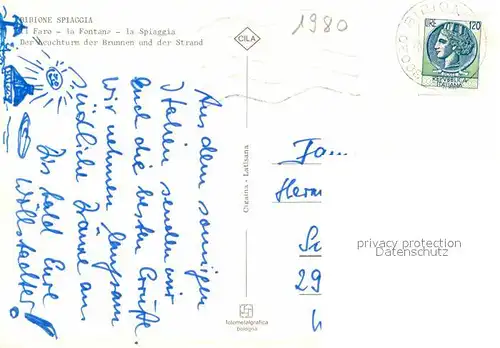 BIBIONE SPIAGGIA
Il Faro - la Fontana - la Spiaggia
Der Leuchturm der Brunnen und der Strand
CILA
1980
LIRE 120
REPUBBLICA
ITALIANA
Aus dem sonnigen
Italien senden wir
Euch die besten Grüße.
Wir nehmen langsam
südliche Bräune an
Bis bald Eure
Wöllstädter!
Cicuina - Latisana
fotometalgrafica
bologna
Fam
Herm
29
privacy protection
Datenschutz